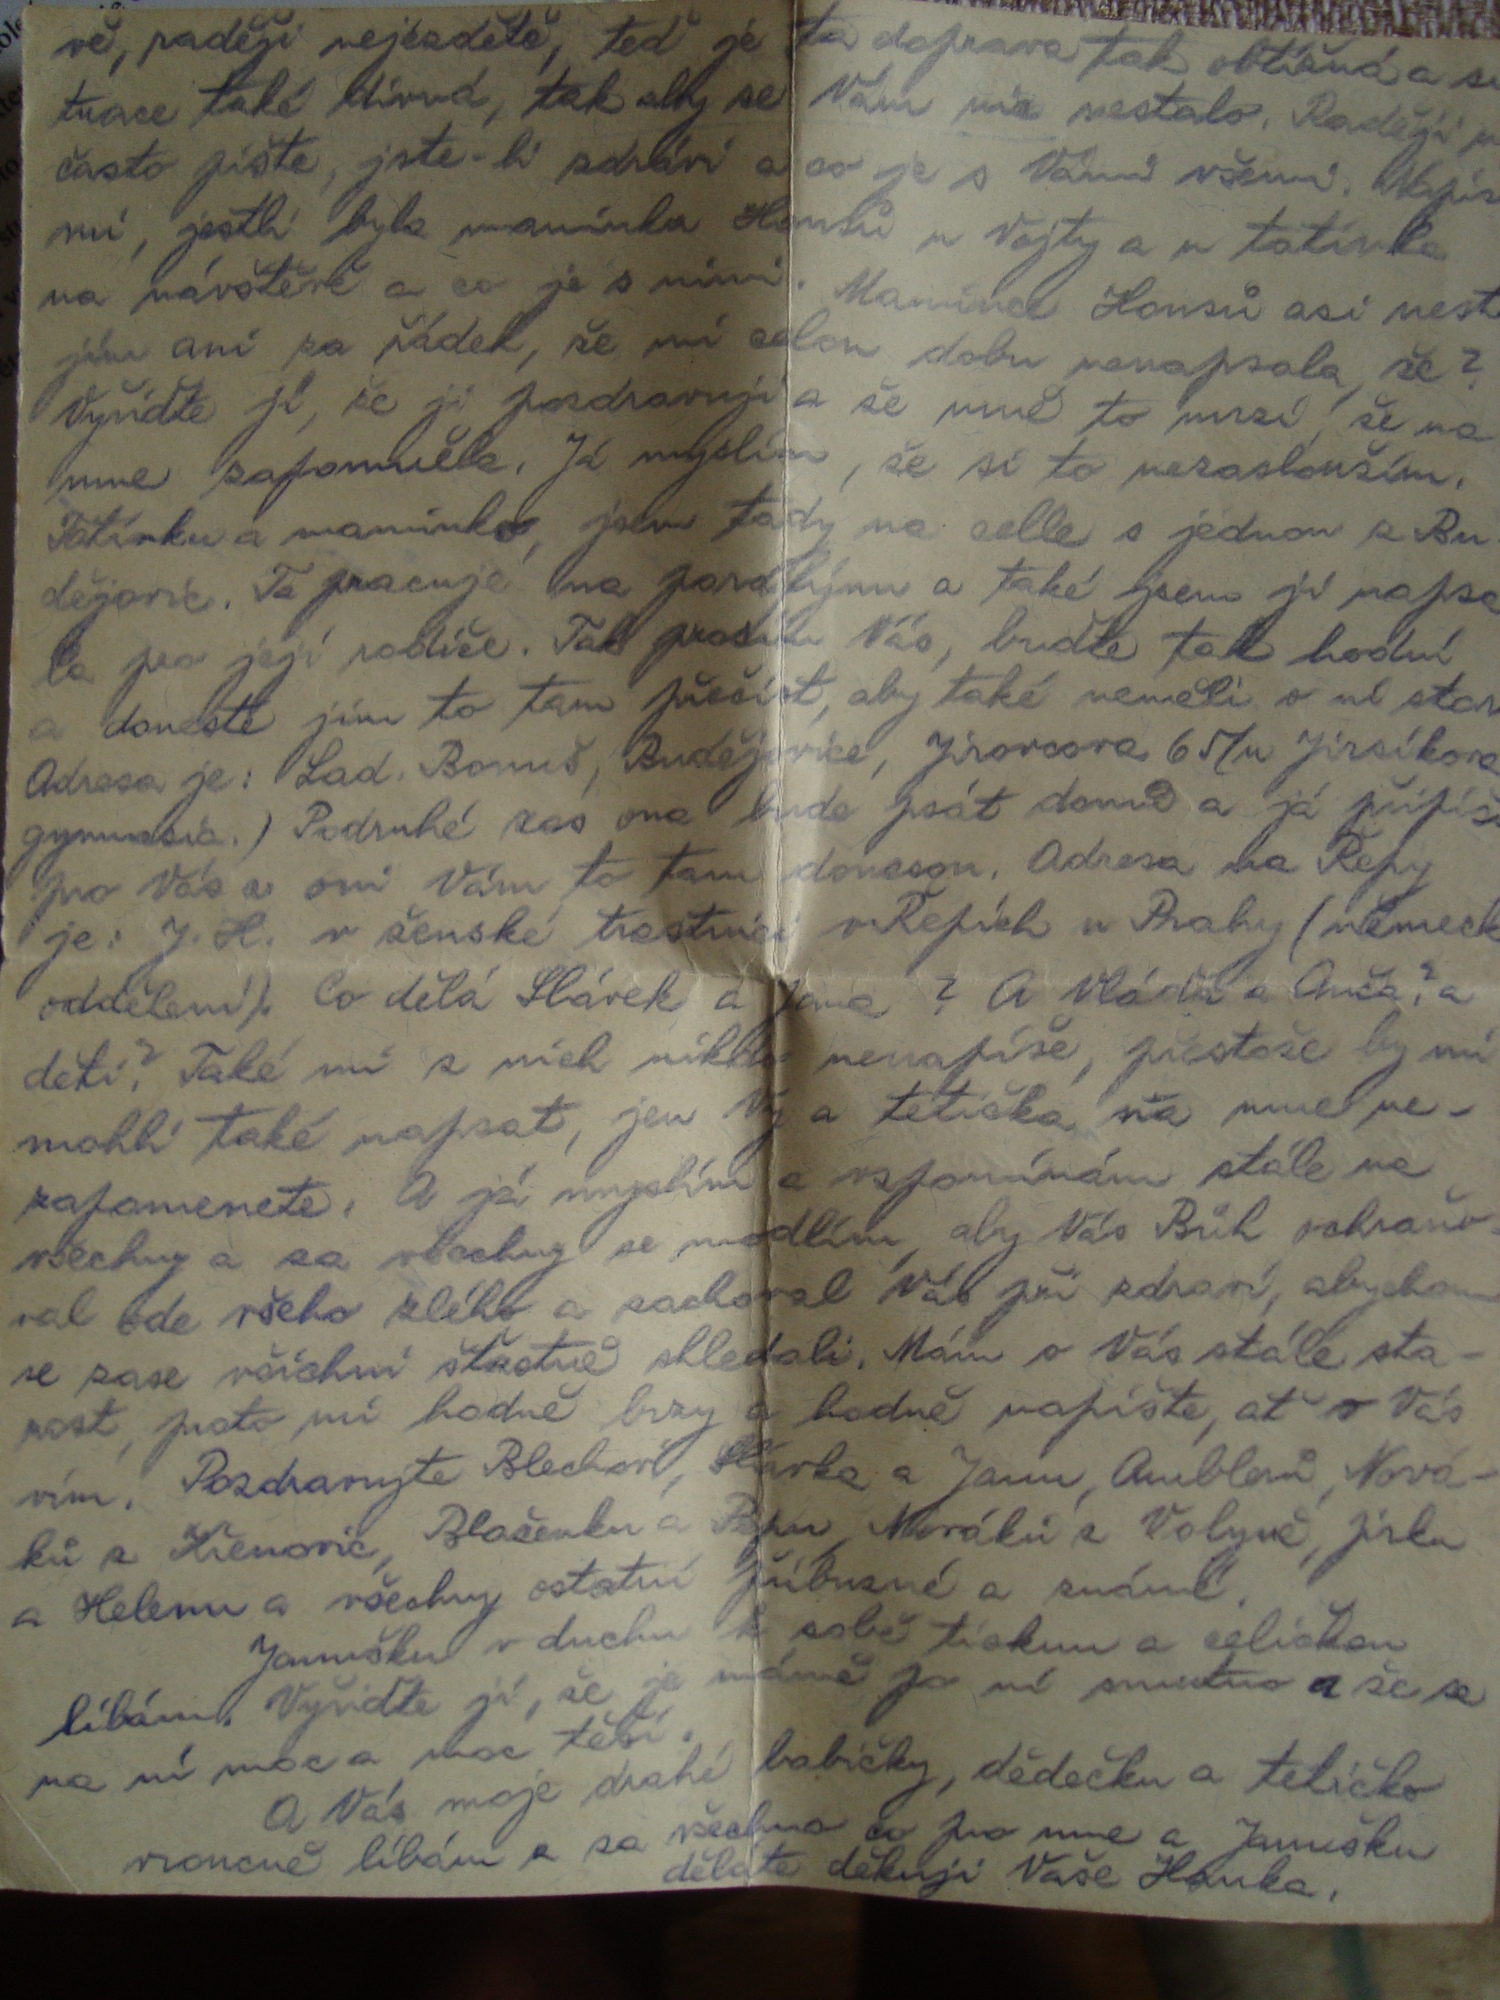 vě, raději nejezděte, teď je ta doprava tak obtížná a si
tuace také divná, tak aby se Vám nic nestalo. Raději
často pište, jste-li zdrávi a co je s Vámi všemi. Napiš
mi, jestli byla maminka Honsů u Vojty a u tatínka
na návštěvě a co je s nimi. Mamince Honsů asi nest
jím ani za řádek, že mi celou dobu nenapsala, že?
Vyřiďte jí, že ji pozdravuji a že mně to mrzí, že na
mne zapomněla. Já myslím, že si to nezasloužím.
Tatínku a maminko, jsem tady na celle s jednou z Bu-
dějovic. Ta pracuje na a také jsem jí napsa
la pro její rodiče. Tak prosím Vás, buďte tak hodní
a doneste jim to tam přečíst, aby také neměli o ní star
Adresa je: Lad. Bonuš, Budějovice, Jirovcova 65/u Jirsíkova
gymnasia.) Podruhé zas ona bude psát domů a já připíš
pro Vás a oni Vám to tam donesou. Adresa na Řepy
je: J. H. v ženské trestnici v Řepích u Prahy (německ
oddělení). Co dělá Slávek a Jana? A Vláďa a Anča? a
děti? Také mi z nich nikdo nenapíše, přestože by mi
mohli také napsat, jen Vy a tetička na mne ne-
zapomenete. A já myslím a vzpomínám stále na
všechny a za všechny se modlím, aby Vás Bůh ochraňo-
val ode všeho zlého a zachoval Vás při zdraví, abychom
se zase všichni šťastně shledali. Mám o Vás stále sta-
rost, proto mi hodně brzy a hodně napište, ať o Vás
vím. Pozdravujte Blechovi, Slávka a Janu, Amblerů, Nová-
ků z Křenovic, Blaženku a Pepu, Nováků z Volyně, Jirku
a Helenu a všechny ostatní příbuzné a známé.
Janušku v duchu k sobě tisknu a celičkou
líbám. Vyřiďte jí, že je mámě po ní smutno a že se
na ní moc a moc těší.
A Vás moje drahé babičky, dědečku a tetičko
vroucně líbám a za všechno co pro mne a Janušku
děláte děkuji Vaše Hanka.